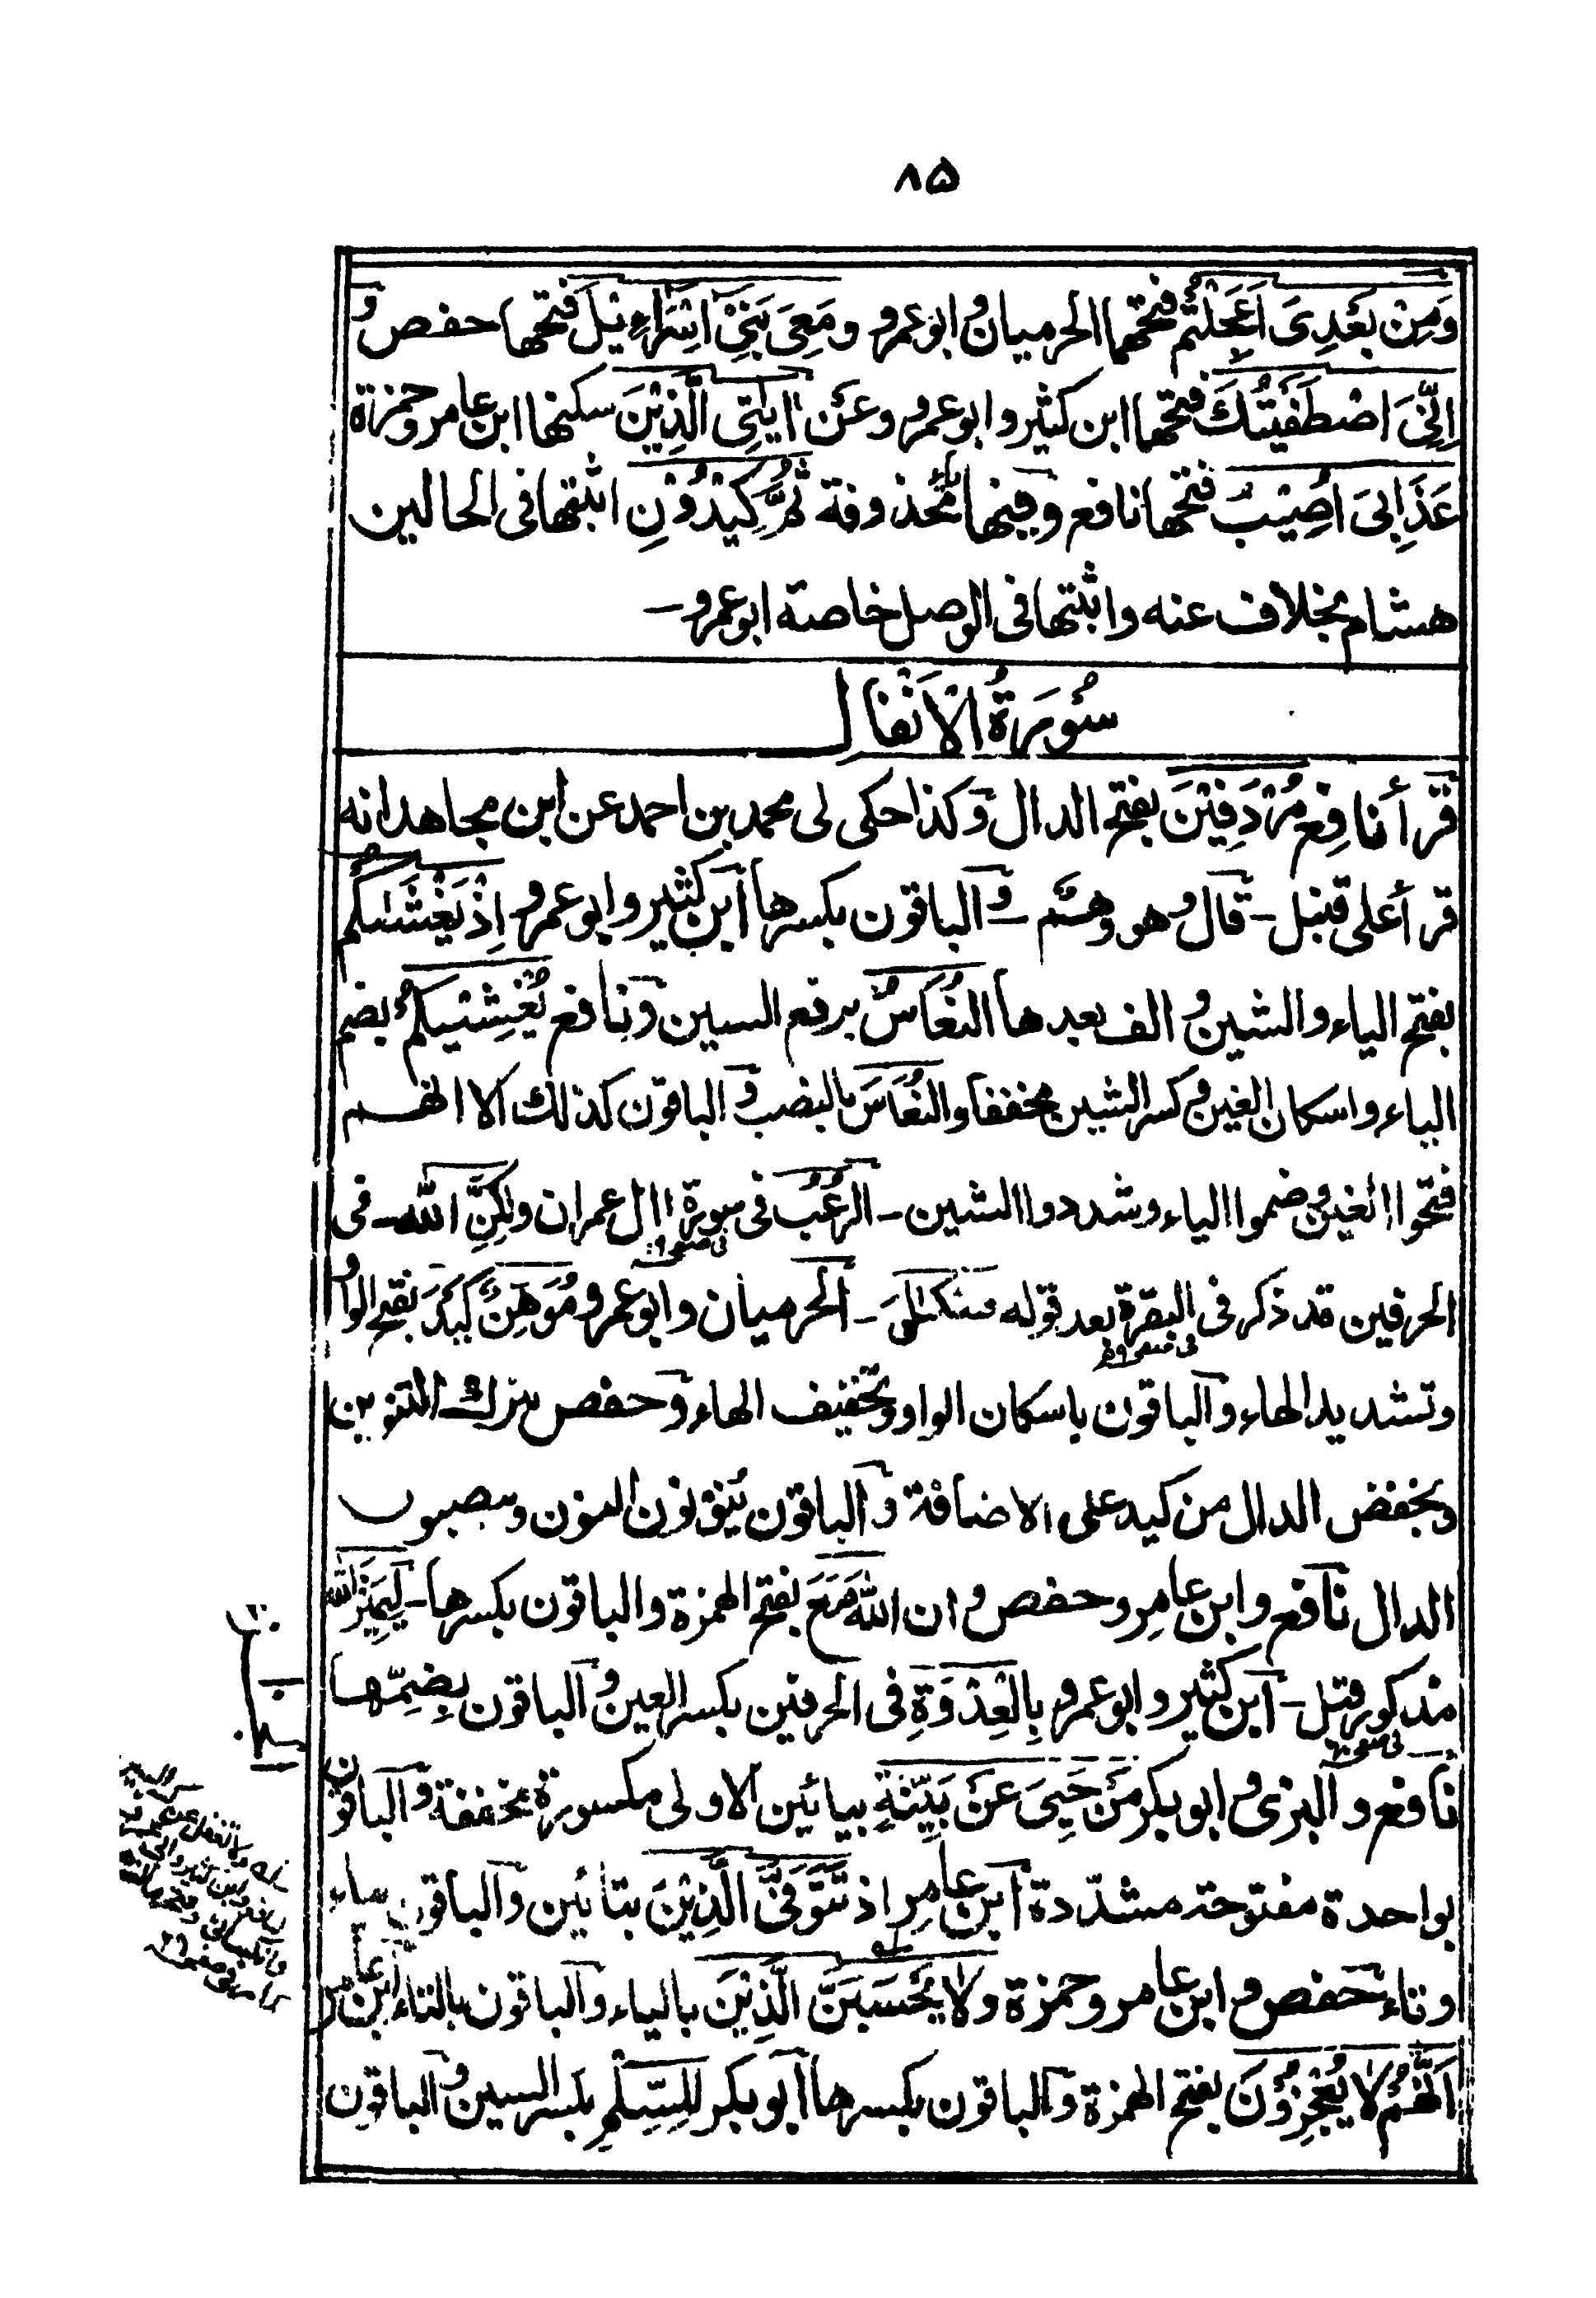 ۸۵
وَمِنْ بَعْدِىَ اَعَجِلْتُمْ فتحهما الحرميان و ابو عمرو ومَعِىَ بَنِىْ اِسْرَاءِيْلَ فتحها حفص و
اِنِّىَ اصْطَفَيْتُكَ فتحها ابن كثير و ابو عمرو وعَنْ اٰيٰتِى الَّذِيْنَ سكنها ابن عامر وحمزة
عَذَابِىَ اُصِيْبُ فتحها نافع وفيها محذوفة ثُمَّ كِيْدُوْنِ اثبتها فى الحالين
هشام بخلاف عنه واثبتها فى الوصل خاصة ابو عمرو -
سُوْرَةُ الْاَنْفَالِ
قرأ نافِع مُرْدَفِيْنَ بفتح الدال وكذا حكى لى محمد بن احمد عن ابن مجاهد انه
قرأ على قنبل - قال و هو وهم - والباقون بكسرها ابن كثير وابو عمرو اِذْ يَغْشٰىكُمُ
بفتح الياء والشين و الف بعدها النُّعَاسُ برفع السين ونافع يُغْشِيْكُمُ بضم
الياء واسكان الغين و كسر الشين مخففا والنُّعَاسَ بالنصب و الباقون كذلك الا انهم
فتحوا الغين وضموا الياء وشددوا الشين - الرُّعُبَ فى سورة اٰل عمران ولٰكِنِ الله - فى
الحرفين قد ذكر فى البقرة بعد قوله مِيْكٰئِلَ - الحرميان وابو عمرو مُوَهِّنٌ كَيْدَ بفتح الواو
وتشديد الهاء والباقون باسكان الواو وتخفيف الهاء وحفص بترك التنوين
ويخفض الدال من كيد على الاضافة والباقون ينونون النون وينصبون
الدال نافع وابن عامر وحفص و ان اللهَ مَعَ بفتح الهمزة والباقون بكسرها - لِيَمِيْزَ الله
مذكور قبل - ابن كثير وابو عمرو بِالْعِدْوَةِ فى الحرفين بكسر العين والباقون بِضمّها
نافع والبزى و ابو بكر مَنْ حَيِىَ عَنْ بَيِّنَةٍ بيائين الاولى مكسورة مخففة والباقون
بواحدة مفتوحة مشدّدة ابن عامر اذ تَتَوَفَّى الَّذِيْنَ بتائين والباقون بياء
وتاء حفص و ابن عامر وحمزة ولا يَحْسَبَنَّ الَّذِيْنَ بالياء والباقون بالتاء ابن عامر
اَنَّهُمْ لَا يُعْجِزُوْنَ بفتح الهمزة والباقون بكسرها ابو بكر لِلسِّلْمِ بكسر السين والباقون